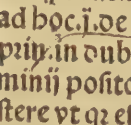 ad hoc.i.de
priu.in dub
minij posito
stere vt qr es